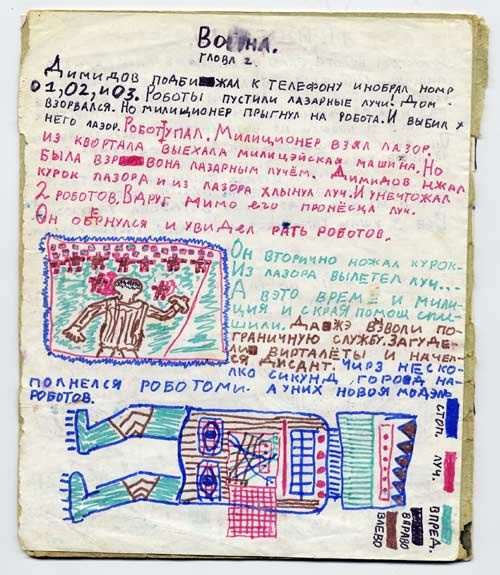 Война.
глова 2.
Димидов подбижал к телефону инобрал номр
01,02, и 03. Роботы пустили лазарные лучи! Дом
взорвался. Но милиционер прыгнул на робота. И выбил у
него лазор. Робот упал. Милиционер взял лазор.
из квортала выехала милицэйская машина. Но
была взр вона лазарным лучём. Димидов нжал
курок лазора и из лазора хлынул луч. И унечтожал
2 роботов. Вдруг мимо его пронёсца луч.
Он обернулся и увидел рать роботов.
Он вторично ножал курок-
Из лазора вылетел луч...
А вэто врем е и мили-
ция и скрая помощ спи-
шили. Давжэ взволи по-
граничную службу. Загуде-
ли вирталёты и начел-
ся дисант. Чирз неско-
лко сикунд, город на-
полнелся роботоми. А у них новоя модэль
роботов.
стоп.
луч.
впред.
вправо
влево